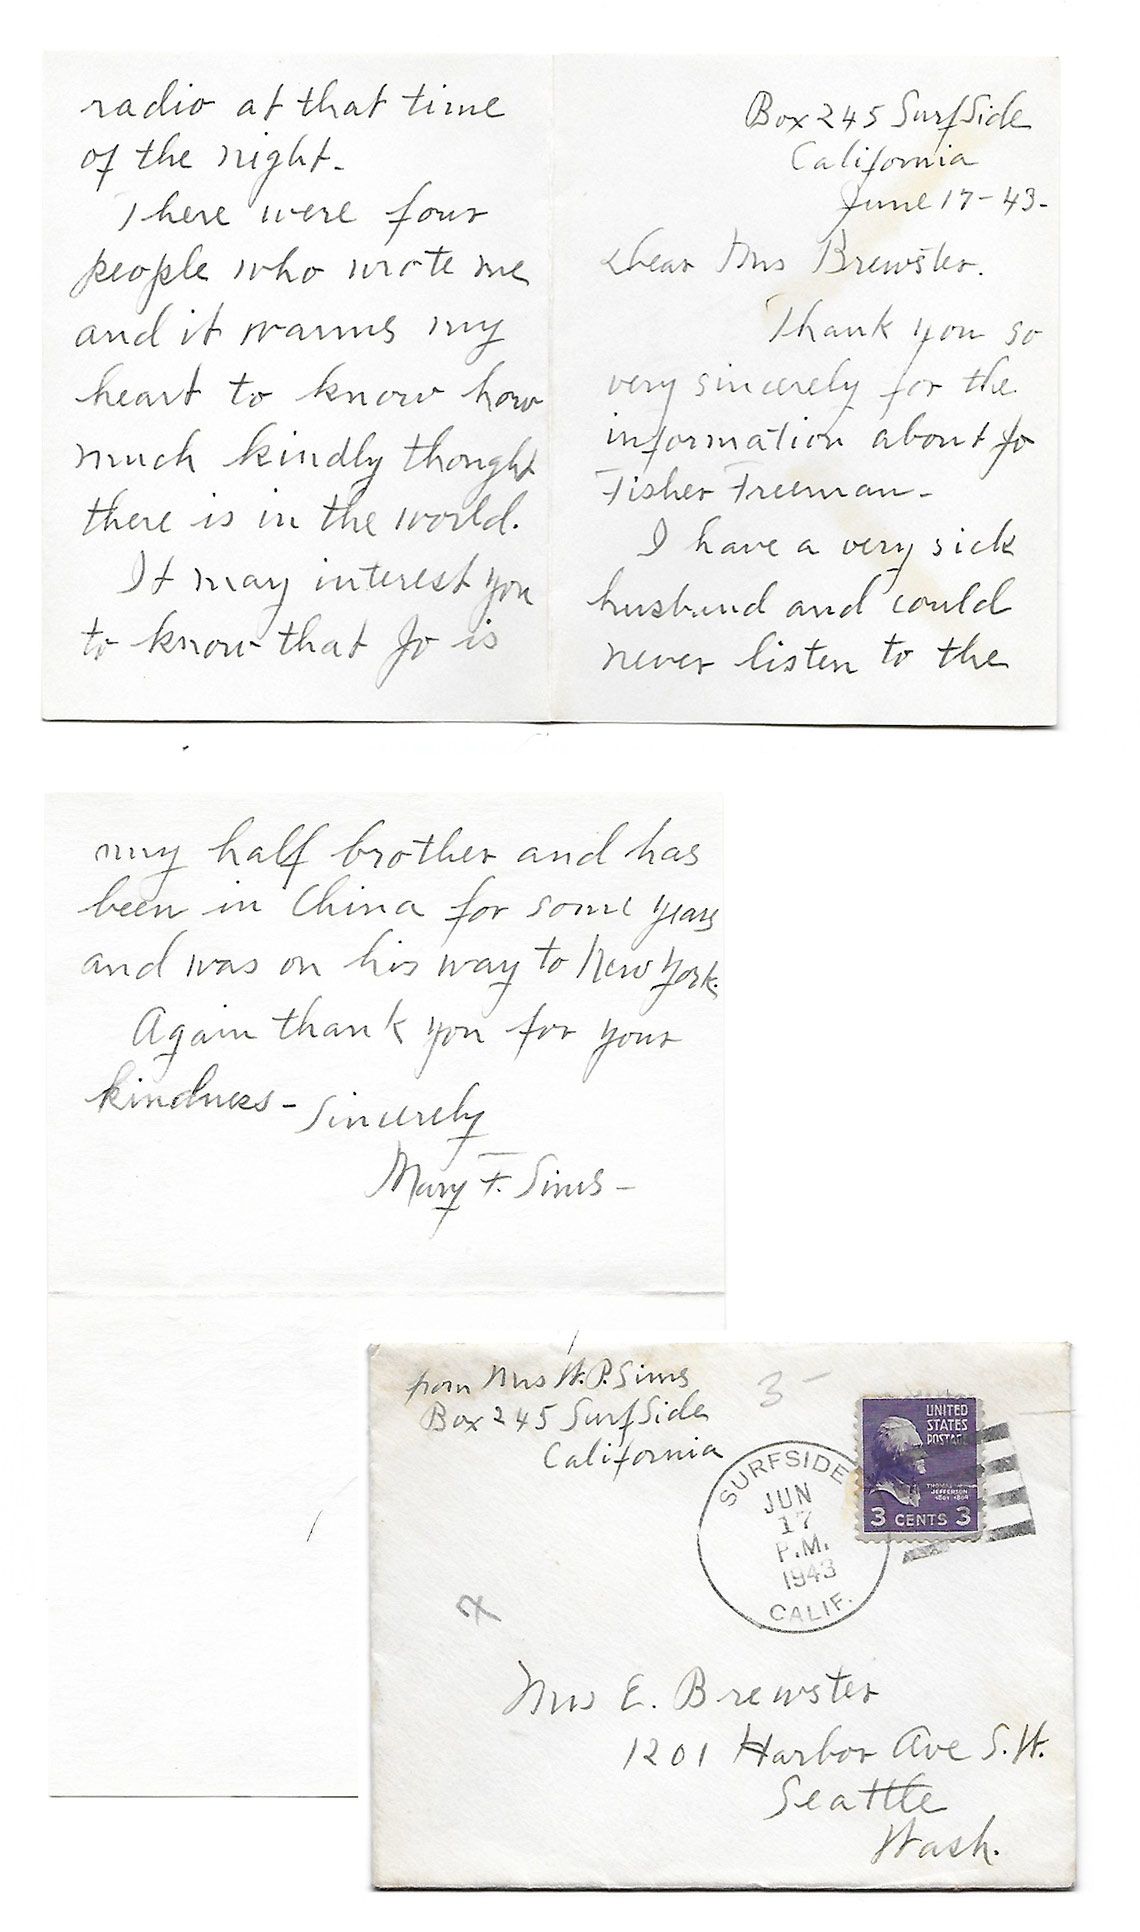 Box 245 SurfSide
California
June 17-43-
Dear Mrs Brewster.
Thank you so
very sincerely for the
information about Jo
Fisher Freeman-
I have a very sick
husband and could
never listen to the
radio at that time
of the night-
There were four
people who wrote me
and it warms my
heart to know how
much kindly thought
there is in the world.
It may interest you
to know that Jo is
my half brother and has
been in China for some years
and was on his way to New York.
Again thank you for your
kindness- Sincerely
Mary F. Sims-
from Mrs W.P. Sims
Box 245 SurfSide
California
3-
SURFSIDE
JUN
17
P.M.
1943
CALIF.
UNITED
STATES
POSTAGE
THOMAS
JEFFERSON
1801-1809
3 CENTS 3
Mrs E. Brewster
1201 Harbor Ave S.W.
Seattle
Wash.